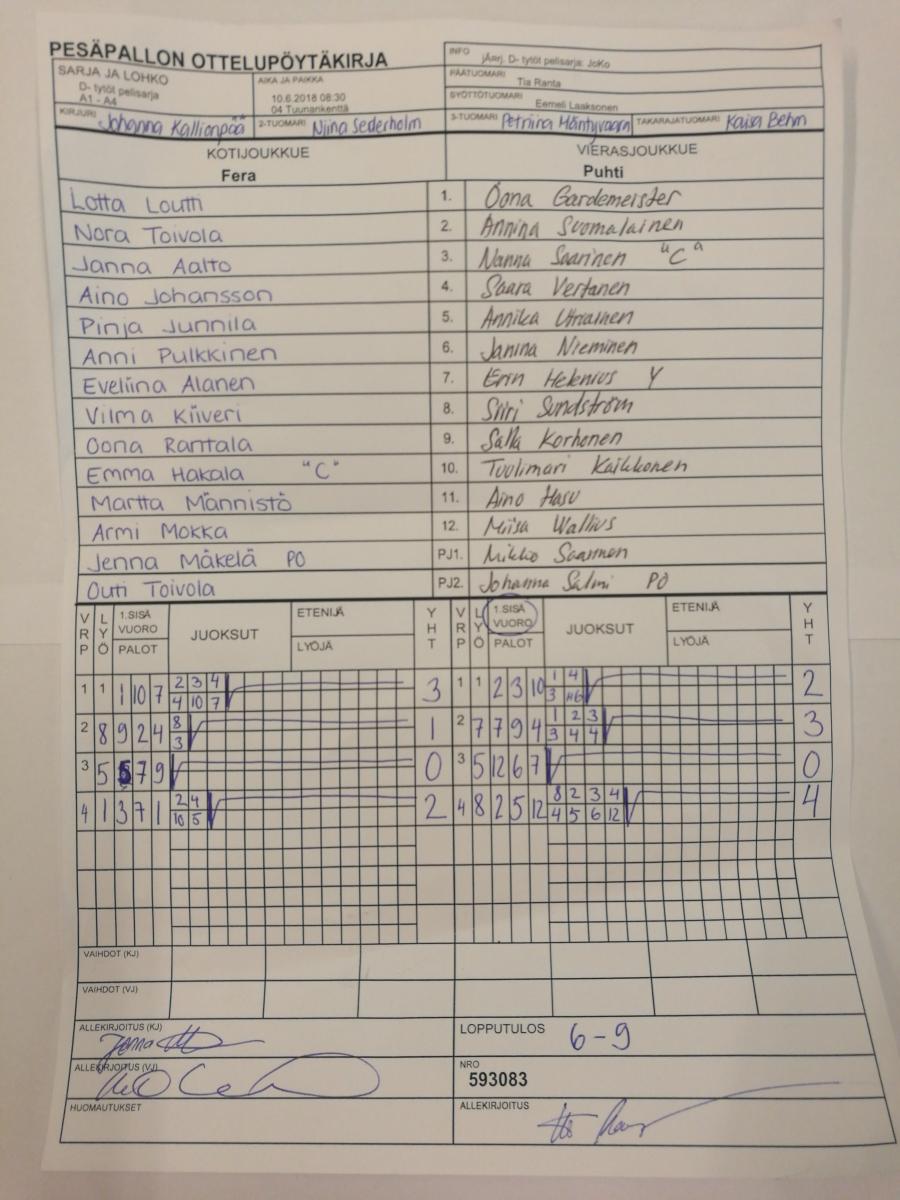 PESÄPALLON OTTELUPÖYTÄKIRJA
SARJA JA LOHKO
D- tytöt pelisarja
A1 - A4
AIKA JA PAIKKA
10.6.2018 08:30
04 Tuunankenttä
INFO jÄrrj. D- tytöt pelisarja: JoKo
PÄÄTUOMARI Tia Ranta
SYÖTTÖTUOMARI Eemeli Laaksonen
KIRJURI Johanna Kallionpää 2-TUOMARI Niina Sederholm 3-TUOMARI Petriina Mäntyvaara TAKARAJATUOMARI Kaisa Behm
KOTIJOUKKUE VIERASJOUKKUE
Fera Puhti
Lotta Loutti 1. Oona Gardemeister
Nora Toivola 2. Annina Suomalainen
Janna Aalto 3. Nanna Saarinen "C"
Aino Johansson 4. Saara Vertanen
Pinja Junnila 5. Annika Utriainen
Anni Pulkkinen 6. Janina Nieminen
Eveliina Alanen 7. Erin Helenius Y
Vilma Kiiveri 8. Siiri Sundström
Oona Rantala 9. Salla Korhonen
Emma Hakala "C" 10. Tuulimari Kaikkonen
Martta Männistö 11. Aino Hasu
Armi Mokka 12. Miisa Wallius
Jenna Mäkelä PO PJ1. Mikko Saarinen
Outi Toivola PJ2. Johanna Salmi PO
VRP LYÖ 1.SISÄ VUORO PALOT JUOKSUT ETENIJÄ LYÖJÄ YHT VRP LYÖ 1.SISÄ VUORO PALOT JUOKSUT ETENIJÄ LYÖJÄ YHT
1 1 1 10 7 2 3 4 3 1 1 2 3 10 1 4 2
4 10 7 3
2 8 9 2 4 8 1 2 7 7 9 4 1 2 3 3
3 3 4 4
3 5 5 7 9 0 3 5 12 6 7 0
4 1 3 7 1 2 4 2 4 8 2 5 12 8 2 3 4 4
10 5 4 5 6 12
VAIHDOT (KJ)
VAIHDOT (VJ)
ALLEKIRJOITUS (KJ) LOPPUTULOS 6-9
ALLEKIRJOITUS (VJ) NRO
593083
HUOMAUTUKSET ALLEKIRJOITUS